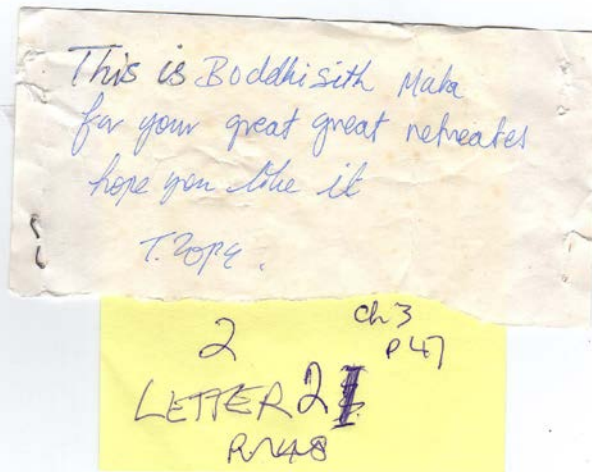 This is Boddhisith Mala
for your great great retreates
hope you like it
T. Zopa.
2
ch 3
P 47
LETTER 2